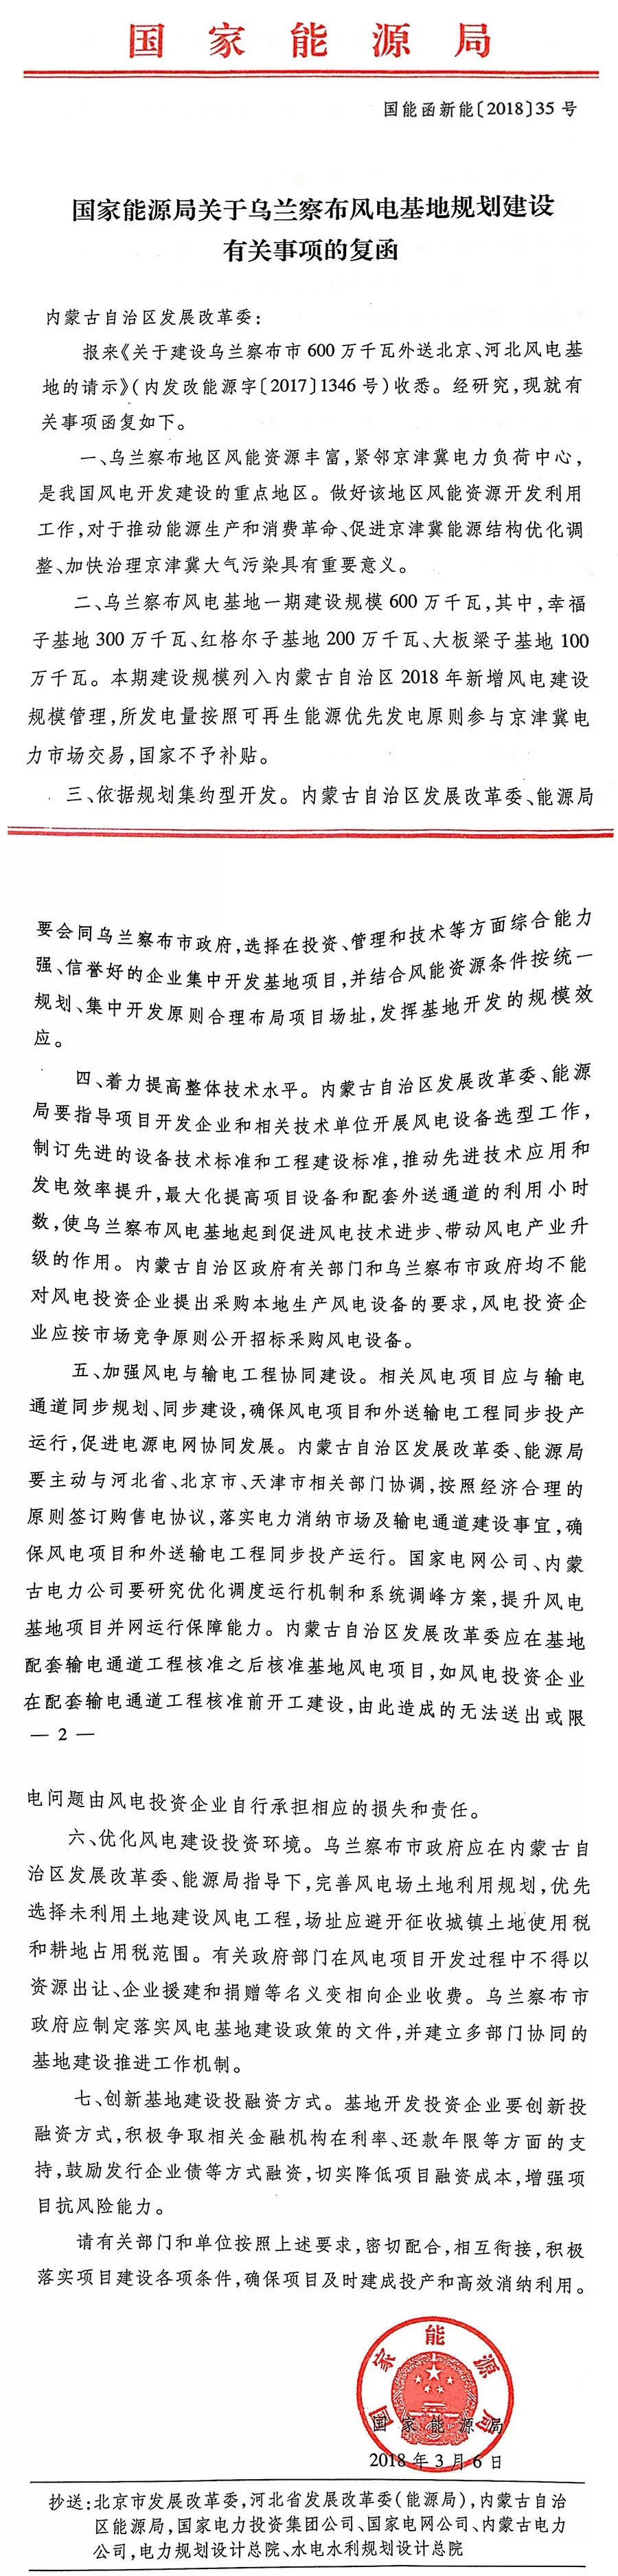 国家能源局
国能函新能〔2018〕35号
国家能源局关于乌兰察布风电基地规划建设
有关事项的复函
内蒙古自治区发展改革委：
报来《关于建设乌兰察布市600万千瓦外送北京、河北风电基
地的请示》(内发改能源字〔2017〕1346号)收悉。经研究,现就有
关事项函复如下。
一、乌兰察布地区风能资源丰富,紧邻京津冀电力负荷中心,
是我国风电开发建设的重点地区。做好该地区风能资源开发利用
工作,对于推动能源生产和消费革命、促进京津冀能源结构优化调
整、加快治理京津冀大气污染具有重要意义。
二、乌兰察布风电基地一期建设规模600万千瓦,其中,幸福
子基地300万千瓦、红格尔子基地200万千瓦、大板梁子基地100
万千瓦。本期建设规模列入内蒙古自治区2018年新增风电建设
规模管理,所发电量按照可再生能源优先发电原则参与京津冀电
力市场交易,国家不予补贴。
三、依据规划集约型开发。内蒙古自治区发展改革委、能源局
要会同乌兰察布市政府,选择在投资、管理和技术等方面综合能力
强、信誉好的企业集中开发基地项目,并结合风能资源条件按统一
规划、集中开发原则合理布局项目场址,发挥基地开发的规模效
应。
四、着力提高整体技术水平。内蒙古自治区发展改革委、能源
局要指导项目开发企业和相关技术单位开展风电设备选型工作,
制订先进的设备技术标准和工程建设标准,推动先进技术应用和
发电效率提升,最大化提高项目设备和配套外送通道的利用小时
数,使乌兰察布风电基地起到促进风电技术进步、带动风电产业升
级的作用。内蒙古自治区政府有关部门和乌兰察布市政府均不能
对风电投资企业提出采购本地生产风电设备的要求,风电投资企
业应按市场竞争原则公开招标采购风电设备。
五、加强风电与输电工程协同建设。相关风电项目应与输电
通道同步规划、同步建设,确保风电项目和外送输电工程同步投产
运行,促进电源电网协同发展。内蒙古自治区发展改革委、能源局
要主动与河北省、北京市、天津市相关部门协调,按照经济合理的
原则签订购售电协议,落实电力消纳市场及输电通道建设事宜,确
保风电项目和外送输电工程同步投产运行。国家电网公司、内蒙
古电力公司要研究优化调度运行机制和系统调峰方案,提升风电
基地项目并网运行保障能力。内蒙古自治区发展改革委应在基地
配套输电通道工程核准之后核准基地风电项目,如风电投资企业
在配套输电通道工程核准前开工建设,由此造成的无法送出或限
— 2 —
电问题由风电投资企业自行承担相应的损失和责任。
六、优化风电建设投资环境。乌兰察布市政府应在内蒙古自
治区发展改革委、能源局指导下,完善风电场土地利用规划,优先
选择未利用土地建设风电工程,场址应避开征收城镇土地使用税
和耕地占用税范围。有关政府部门在风电项目开发过程中不得以
资源出让、企业援建和捐赠等名义变相向企业收费。乌兰察布市
政府应制定落实风电基地建设政策的文件,并建立多部门协同的
基地建设推进工作机制。
七、创新基地建设投融资方式。基地开发投资企业要创新投
融资方式,积极争取相关金融机构在利率、还款年限等方面的支
持,鼓励发行企业债等方式融资,切实降低项目融资成本,增强项
目抗风险能力。
请有关部门和单位按照上述要求,密切配合,相互衔接,积极
落实项目建设各项条件,确保项目及时建成投产和高效消纳利用。
国家能源局
国家能源局
2018年3月6日
抄送:北京市发展改革委,河北省发展改革委(能源局),内蒙古自治
区能源局,国家电力投资集团公司、国家电网公司、内蒙古电力
公司,电力规划设计总院、水电水利规划设计总院